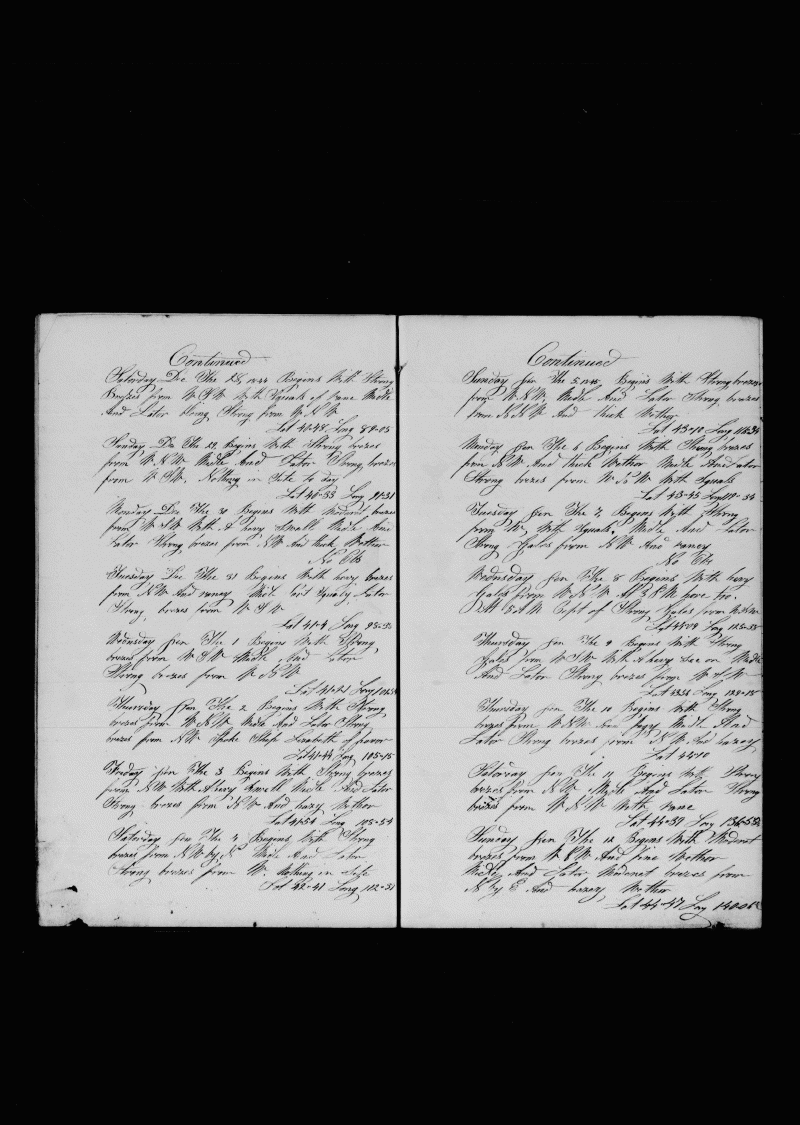 Continued
Saturday Dec The 28, 1844 Begins With Strong
Brezes from W S W With Squals of rane Midle
And Later being Strong from W N W
Lat 41-48 Long 89-05
Sunday Dec The 29 Begins With Strong brezes
from W N W Midle And Later Strong brezes
from W S W Nothing in Site to day
Lat 40-33 Long 91-31
Monday Dec The 30 Begins With Moderat brezes
from W S W With A hevy Swell Midle And
Later Strong brezes from N W And thick Wether
No Obs
Tuesday Dec The 31 Begins With hevy brezes
from N W And raney Midle Part Squaly Later
Strong brezes from W S W
Lat 41-4 Long 95-35
Wednesday Jan The 1 Begins With Strong
brezes from W S W Midle And Later
Strong brezes from W S W
Lat 41-21 Long
Thursday Jan The 2 Begins With Strong
brezes from W N W Midle And Later Strong
brezes from N W Spoke Ship Elizabeth of
Lat 41-44 Long 105-15
Friday Jan The 3 Begins With Strong brezes
from N W With A hevy Swell Midle And Later
Strong brezes from N W And hazy Wether
Lat 41-54 Long 108-54
Saturday Jan The 4 Begins With Strong
brezes from N W by N Midle And Later
Strong brezes from W Nothing in Site
Lat 42-41 Long 112-31
Continued
Sunday Jan The 5, 1845 Begins With Strong brezes
from W N W Midle And Later Strong brezes
from N N W And thick Wether
Lat 43-10 Long
Monday Jan The 6 Begins With Strong brezes
from N W And thick Wether Midle And Later
Strong brezes from W S W With Squals
Lat 43-43 Long
Tuesday Jan The 7 Begins With Strong
from W With Squals Midle And Later
Strong Gales from N W And raney
No Obs
Wednesday Jan The 8 Begins With hevy
Gales from W N W At 8 P M
At 5 A M Cept of Strong Gales from
Lat Long 125-35
Thursday Jan The 9 Begins With Strong
Gales from W S W With A hevy Sea on Midle
And Later Strong brezes from W S W
Lat Long 129-15
Thursday Jan The 10 Begins With Strong
brezes from W N W Midle And
Later Strong brezes from N W And hazey
Lat 44-10
Saturday Jan The 11 Begins With Strong
brezes from N W Midle And Later Strong
brezes from W N W With rane
Lat 44-39 Long 136-53
Sunday Jan The 12 Begins With Moderat
brezes from W S W And fine Wether
Midle And Later Moderat brezes from
N by E And hazey Wether
Lat 44-47 Long 140-06